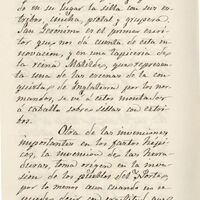 do en su lugar la silla con sus es-
tribos, cincha, pretal y grupera.
San Jerónimo es el primer escritor
que nos da cuenta de esta in-
novación, y en una tapicería de
la reina Matilde, que represen-
ta una de las escenas de la con-
quista de Inglaterra por los nor-
mandos, se ve a estos montados
a caballo sobre sillas con estri-
bos.
Otra de las invenciones
importantes en los partos hípi-
cos, la invención de las herra-
duras, toma origen en la inva-
sión de los pueblos del Norte,
por lo menos aun cuando no se